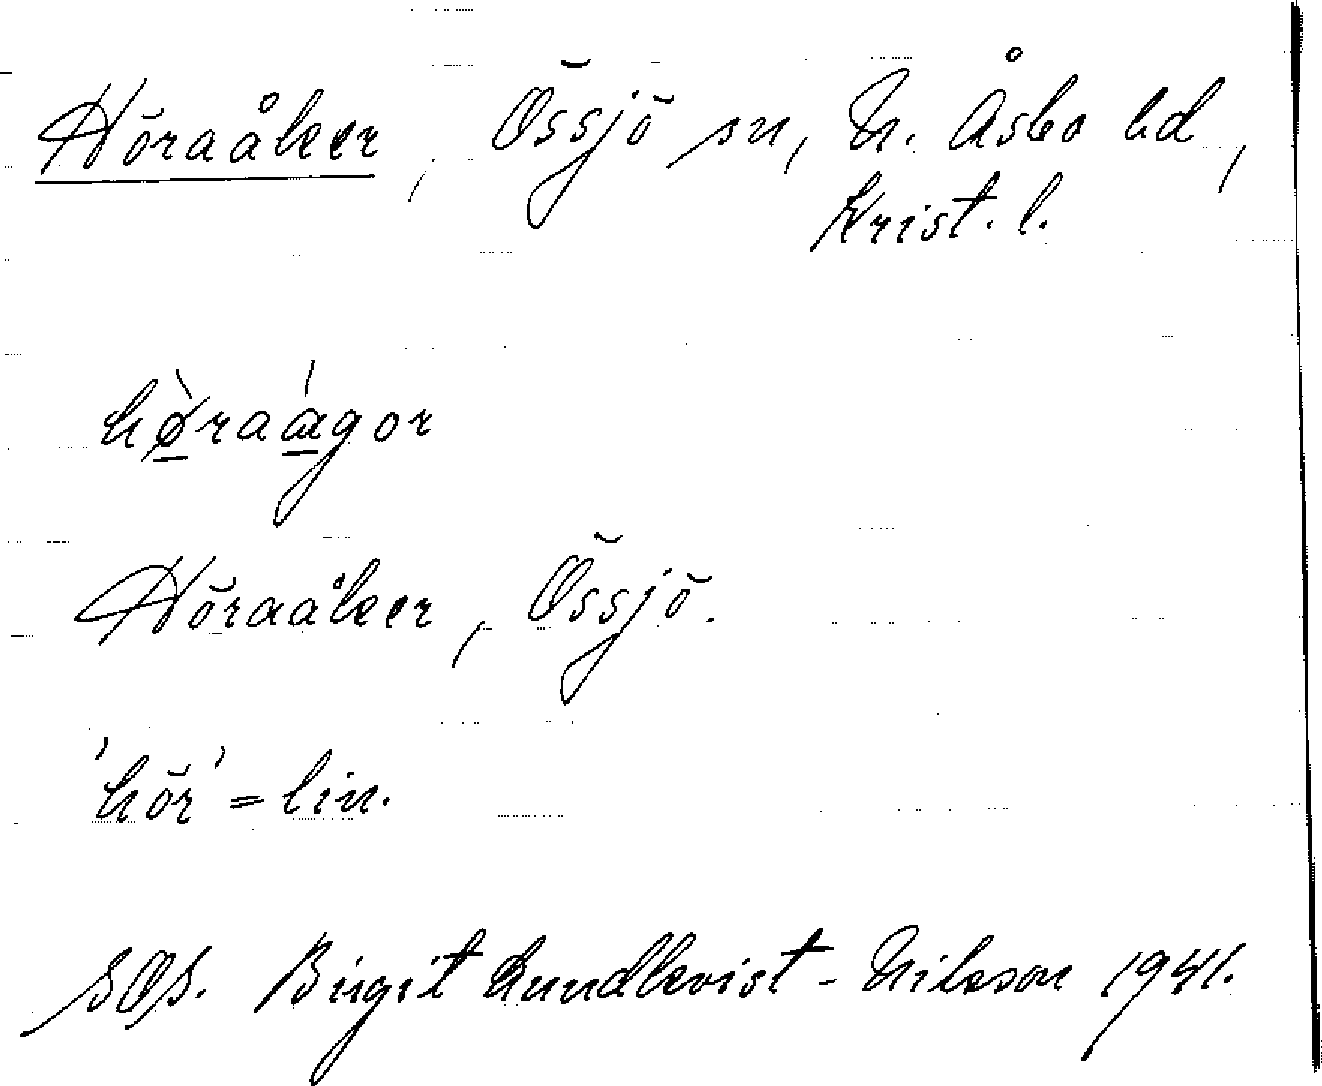 Höraåker, Össjö sn, N. Åsbo hd,
Krist. l.
hø̀raágor
Höraåker, Össjö.
'hör' = lin.
SOS. Birgit Lundkvist-Nilsson 1941.